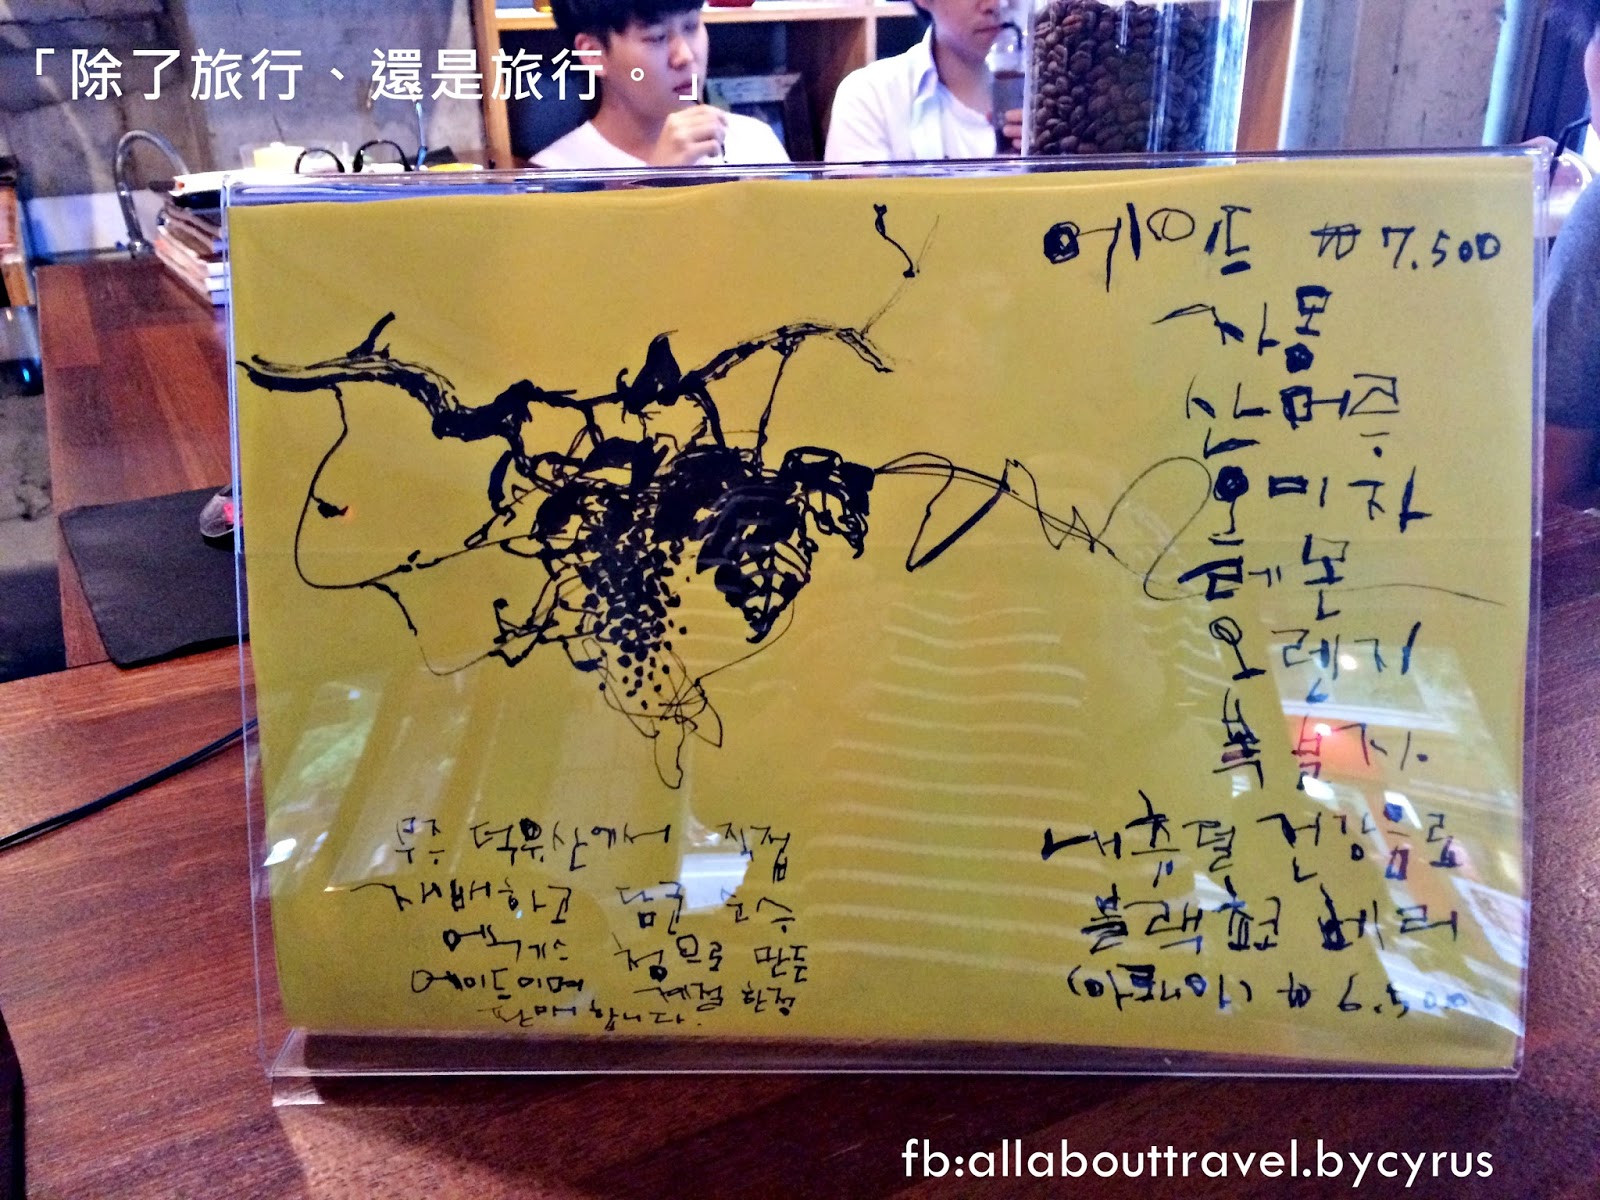 「除了旅行、還是旅行。」
에이드 ₩7.500
자몽
산머루
오미자
레몬
오렌지
복분자
내츄럴 건강음료
블랙쵸코베리
(아로니아) ₩ 7.500
무주 덕유산에서 직접
재배하고 담근 순수
엑기스 청으로 만든
에이드이며 계절 한정
판매합니다.
fb:allabouttravel.bycyrus